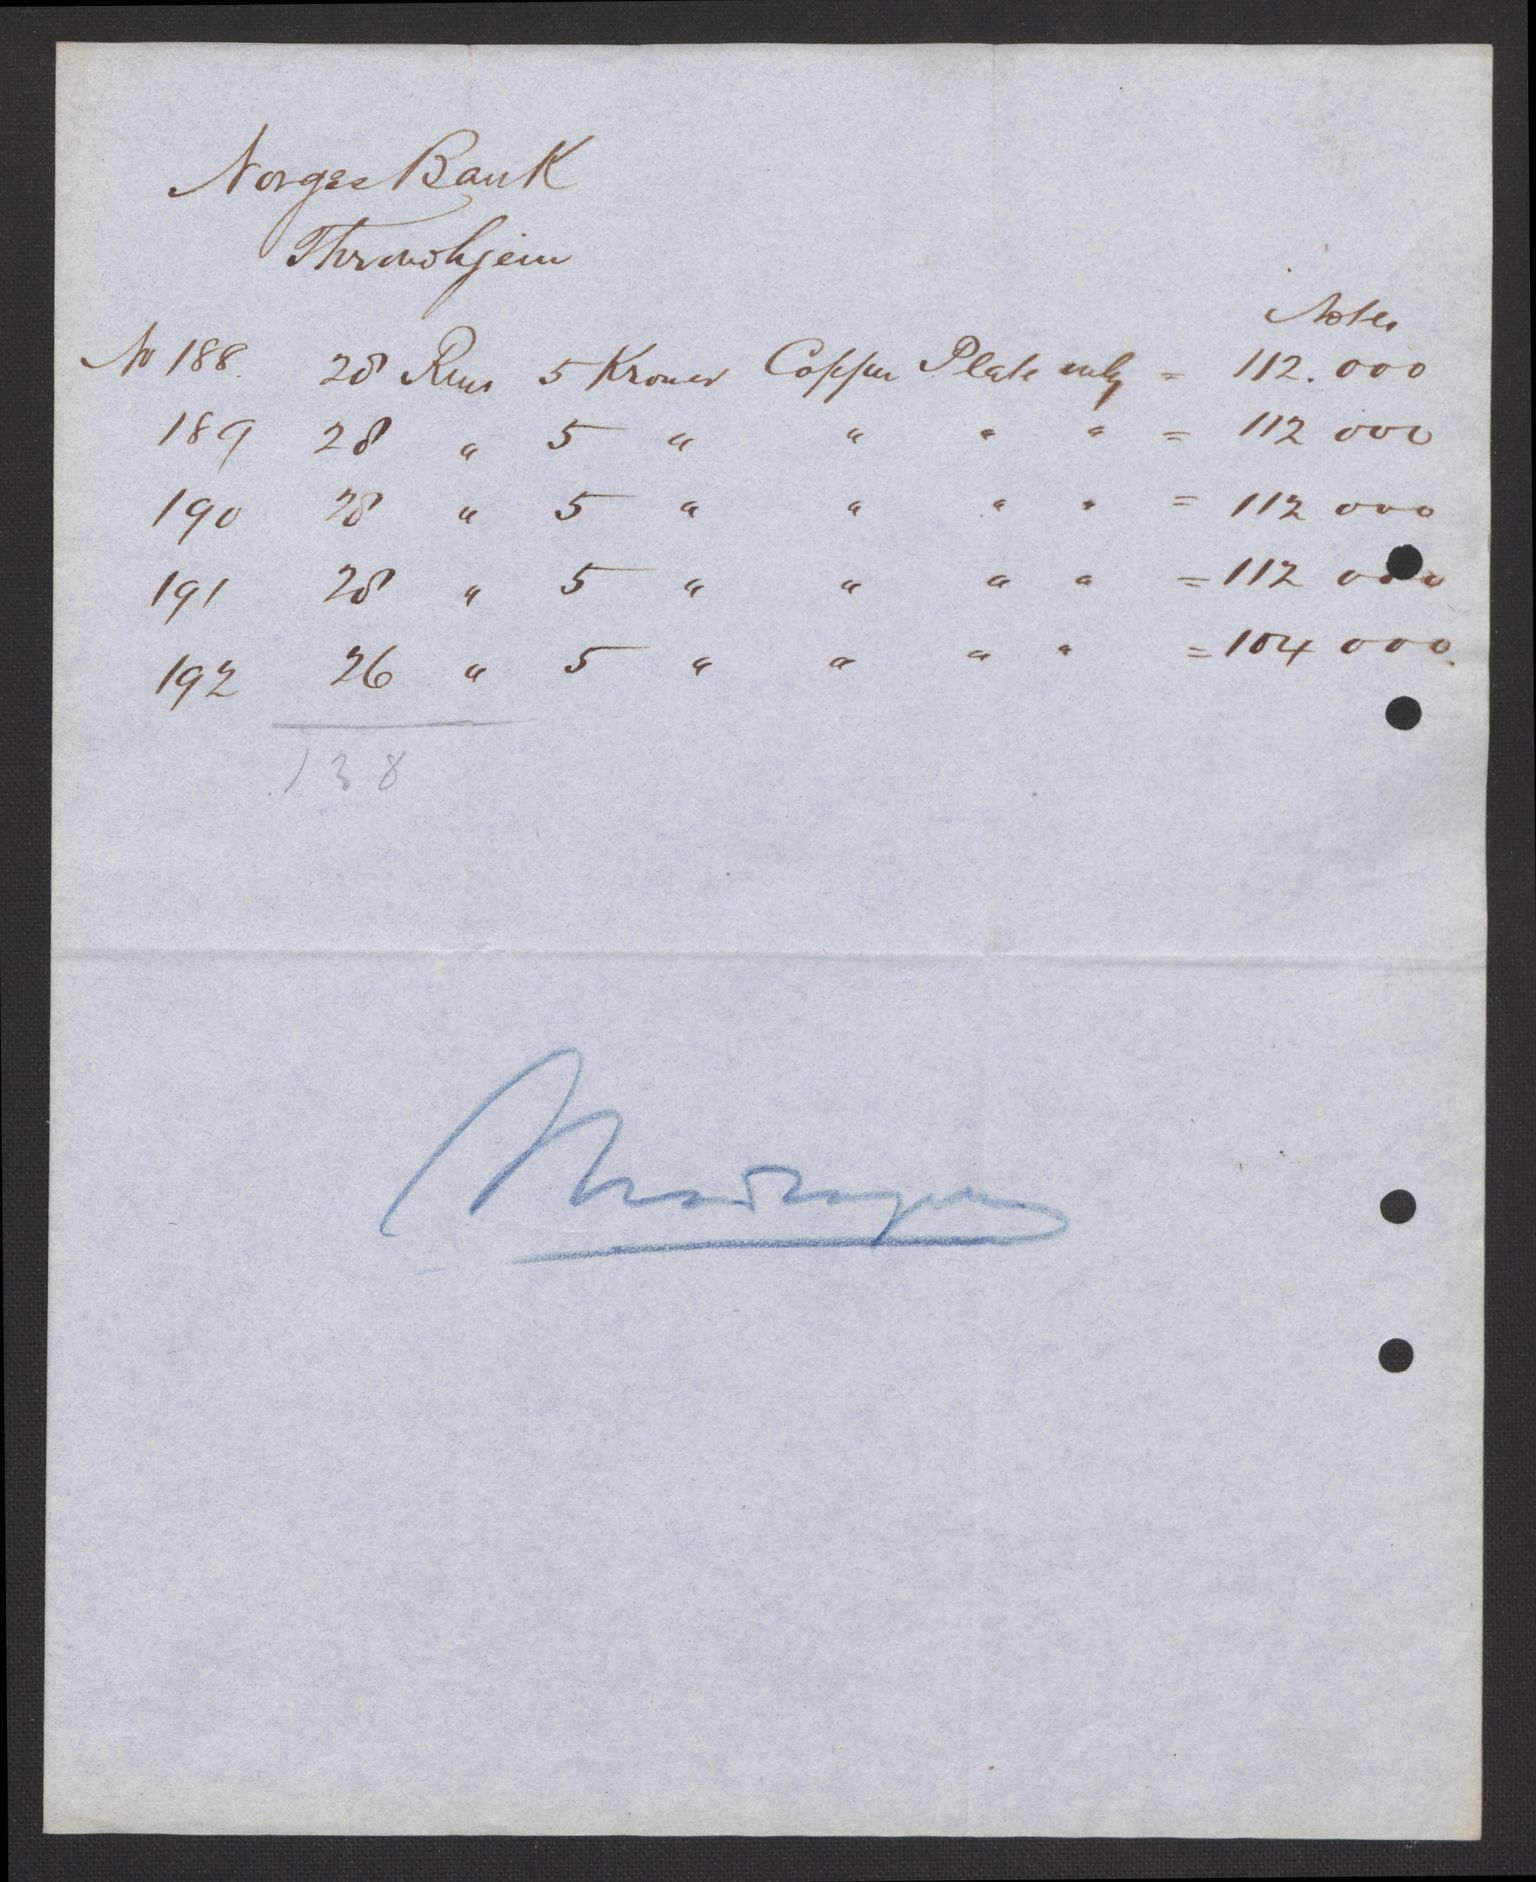 Norges Bank
Throndhjem
Notes
No 188. 28 Rms 5 Kroner Copper Plate only = 112.000
189 28 " 5 " " " " = 112 000
190 28 " 5 " " " " = 112 000
191 28 " 5 " " " " = 112 000
192 26 " 5 " " " " = 104 000.
138